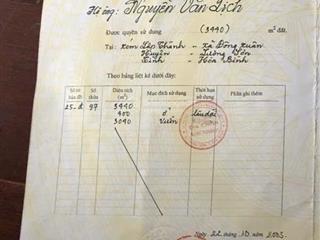 Hộ ông: Nguyễn Văn Lịch
Được quyền sử dụng (3440) m²
Tại: xóm Lập Thành - xã Đông Xuân
Huyện - Lương Sơn
Tỉnh - Hòa Bình
Theo bảng liệt kê dưới đây:
Số tờ bản đồ Số thửa Diện tích (m²) Mục đích sử dụng Thời hạn sử dụng Phần ghi thêm
25-đ 97 3440
400 ở lâu dài
3040 Vườn
Ngày 22 tháng 10 năm 2003